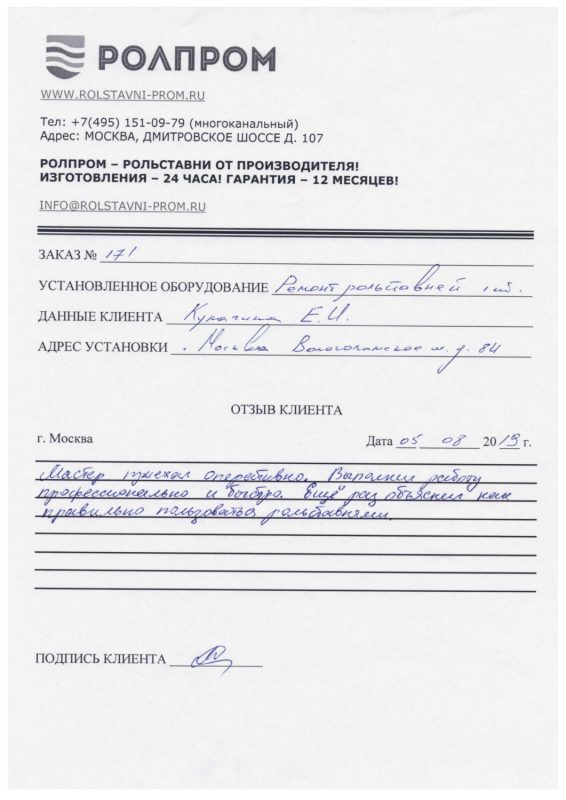 РОЛПРОМ
WWW.ROLSTAVNI-PROM.RU
Тел: +7(495) 151-09-79 (многоканальный)
Адрес: МОСКВА, ДМИТРОВСКОЕ ШОССЕ Д. 107
РОЛПРОМ – РОЛЬСТАВНИ ОТ ПРОИЗВОДИТЕЛЯ!
ИЗГОТОВЛЕНИЯ – 24 ЧАСА! ГАРАНТИЯ – 12 МЕСЯЦЕВ!
INFO@ROLSTAVNI-PROM.RU
ЗАКАЗ № 171
УСТАНОВЛЕННОЕ ОБОРУДОВАНИЕ Ремонт рольставней
ДАННЫЕ КЛИЕНТА Е.И.
АДРЕС УСТАНОВКИ Москва Волоколамское ш. д. 84
ОТЗЫВ КЛИЕНТА
г. Москва Дата 05 08 2019 г.
Мастер приехал оперативно. Выполнил работу
профессионально и быстро. Ещё раз объяснил как
правильно пользоваться рольставнями.
ПОДПИСЬ КЛИЕНТА